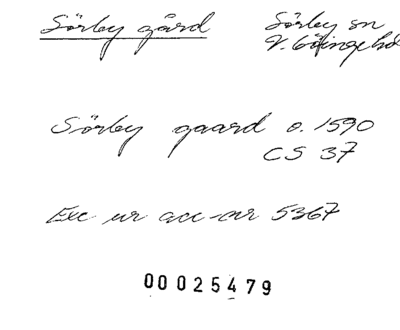 Sörby gård
Sörby sn
V. Göinge hd
Sörby gaard o. 1590
CS 37
Exc ur acc-nr 5367
00025479